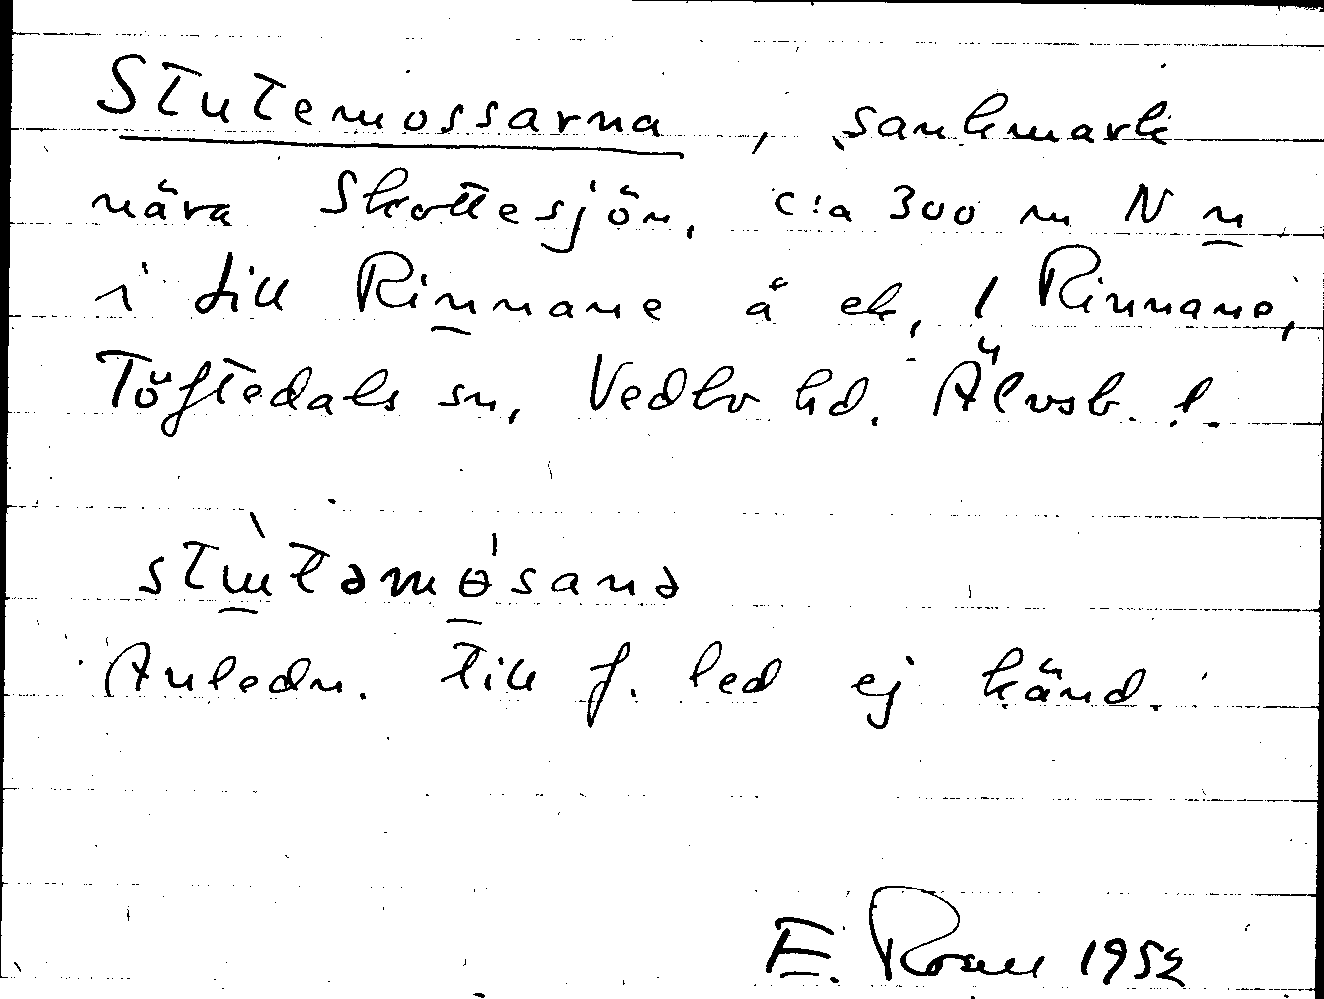 Stutemossarna, sankmark
nära Skottesjön, c:a 300 m N n
i till Rinnane å ek, 1 Rinnane,
Töftedals sn, Vedbo hd. Älvsb. l.
stɯ̀təmɵ́sanə
Anledn. till f. led ej känd.
E. 1952